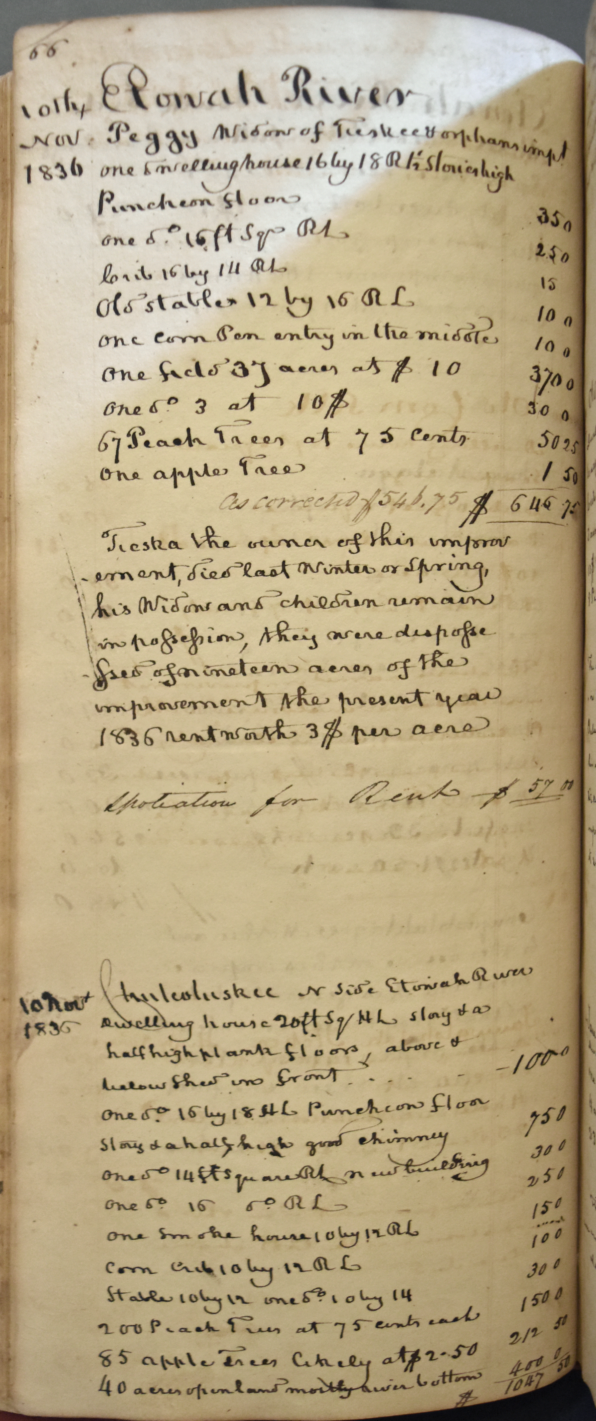 66
10th Etowah River
Nov. Peggy Widow of Tieskee & orphans impt
1836 one dwelling house 16 by 18 RL 1½ Stories high
Puncheon floor 350
one do 16 ft Sqr RL 250
Crib 16 by 14 RL 15
Old stables 12 by 16 RL 100
one corn Pen entry in the middle 100
One field 37 acres at $ 10 3700
One do 3 at 10$ 300
67 Peach Trees at 75 cents 5025
One apple Tree 1 50
as corrected $546.75 $ 646 75
Tieska the owner of this improv
-ement, died last Winter or Spring,
his Widow and children remain
in possession, they were disposse
-ssed of nineteen acres of the
improvement the present year
1836 rent worth 3$ per acre
Spoliation for Rent $ 57 00
10 Novr Chuleoluskee N Side Etowah River
1836 dwelling house 20 ft Sqr HL story & a
half high plank floors, above &
below Shed in front . . . . - 1000
One do 16 by 18 HL Puncheon floor
Story & a half high good chimney 750
One do 14 ft square RL new building 300
One do 16 do RL 250
One Smoke house 10 by 12 RL 150
Corn Crib 10 by 12 RL 100
Stable 10 by 12 one do 10 by 14 300
200 Peach Trees at 75 cents each 1500
85 apple Trees likely at $2-50 212 50
40 acres open land mostly river bottom 4000
$ 1047 50